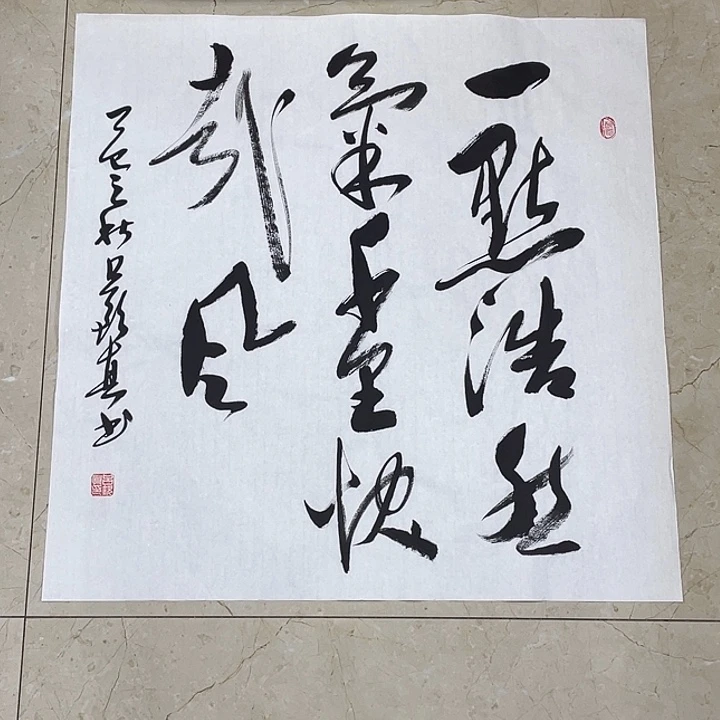 一點浩然
氣千里快
哉風
乙巳之秋 真书